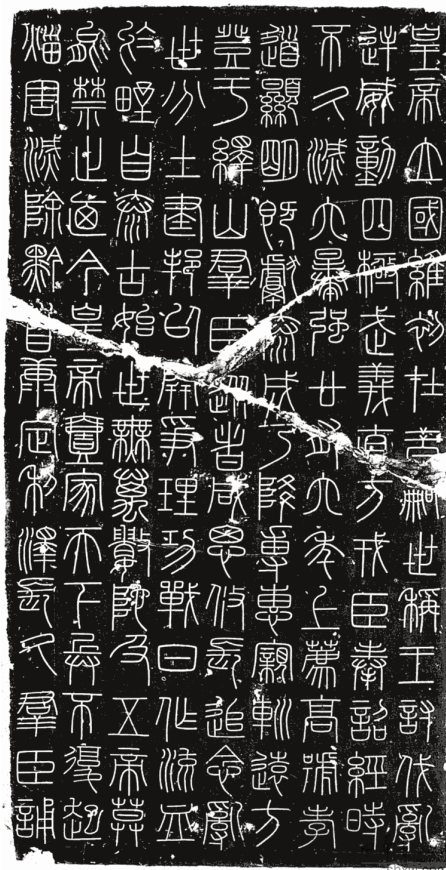 皇帝立國維初在昔嗣世稱王討伐亂
逆威動四極武義直方戎臣奉詔經時
不久滅六暴強廿有六年上薦高號孝
道顯明既獻泰成乃降尃惠寴巡遠方
登于繹山羣臣從者咸思攸長追念亂
世分土建邦以開爭理功戰日作流血
於野自泰古始世無萬數陀及五帝莫
能禁止迺今皇帝壹家天下兵不復起
災害滅除黔首康定利澤長久羣臣誦